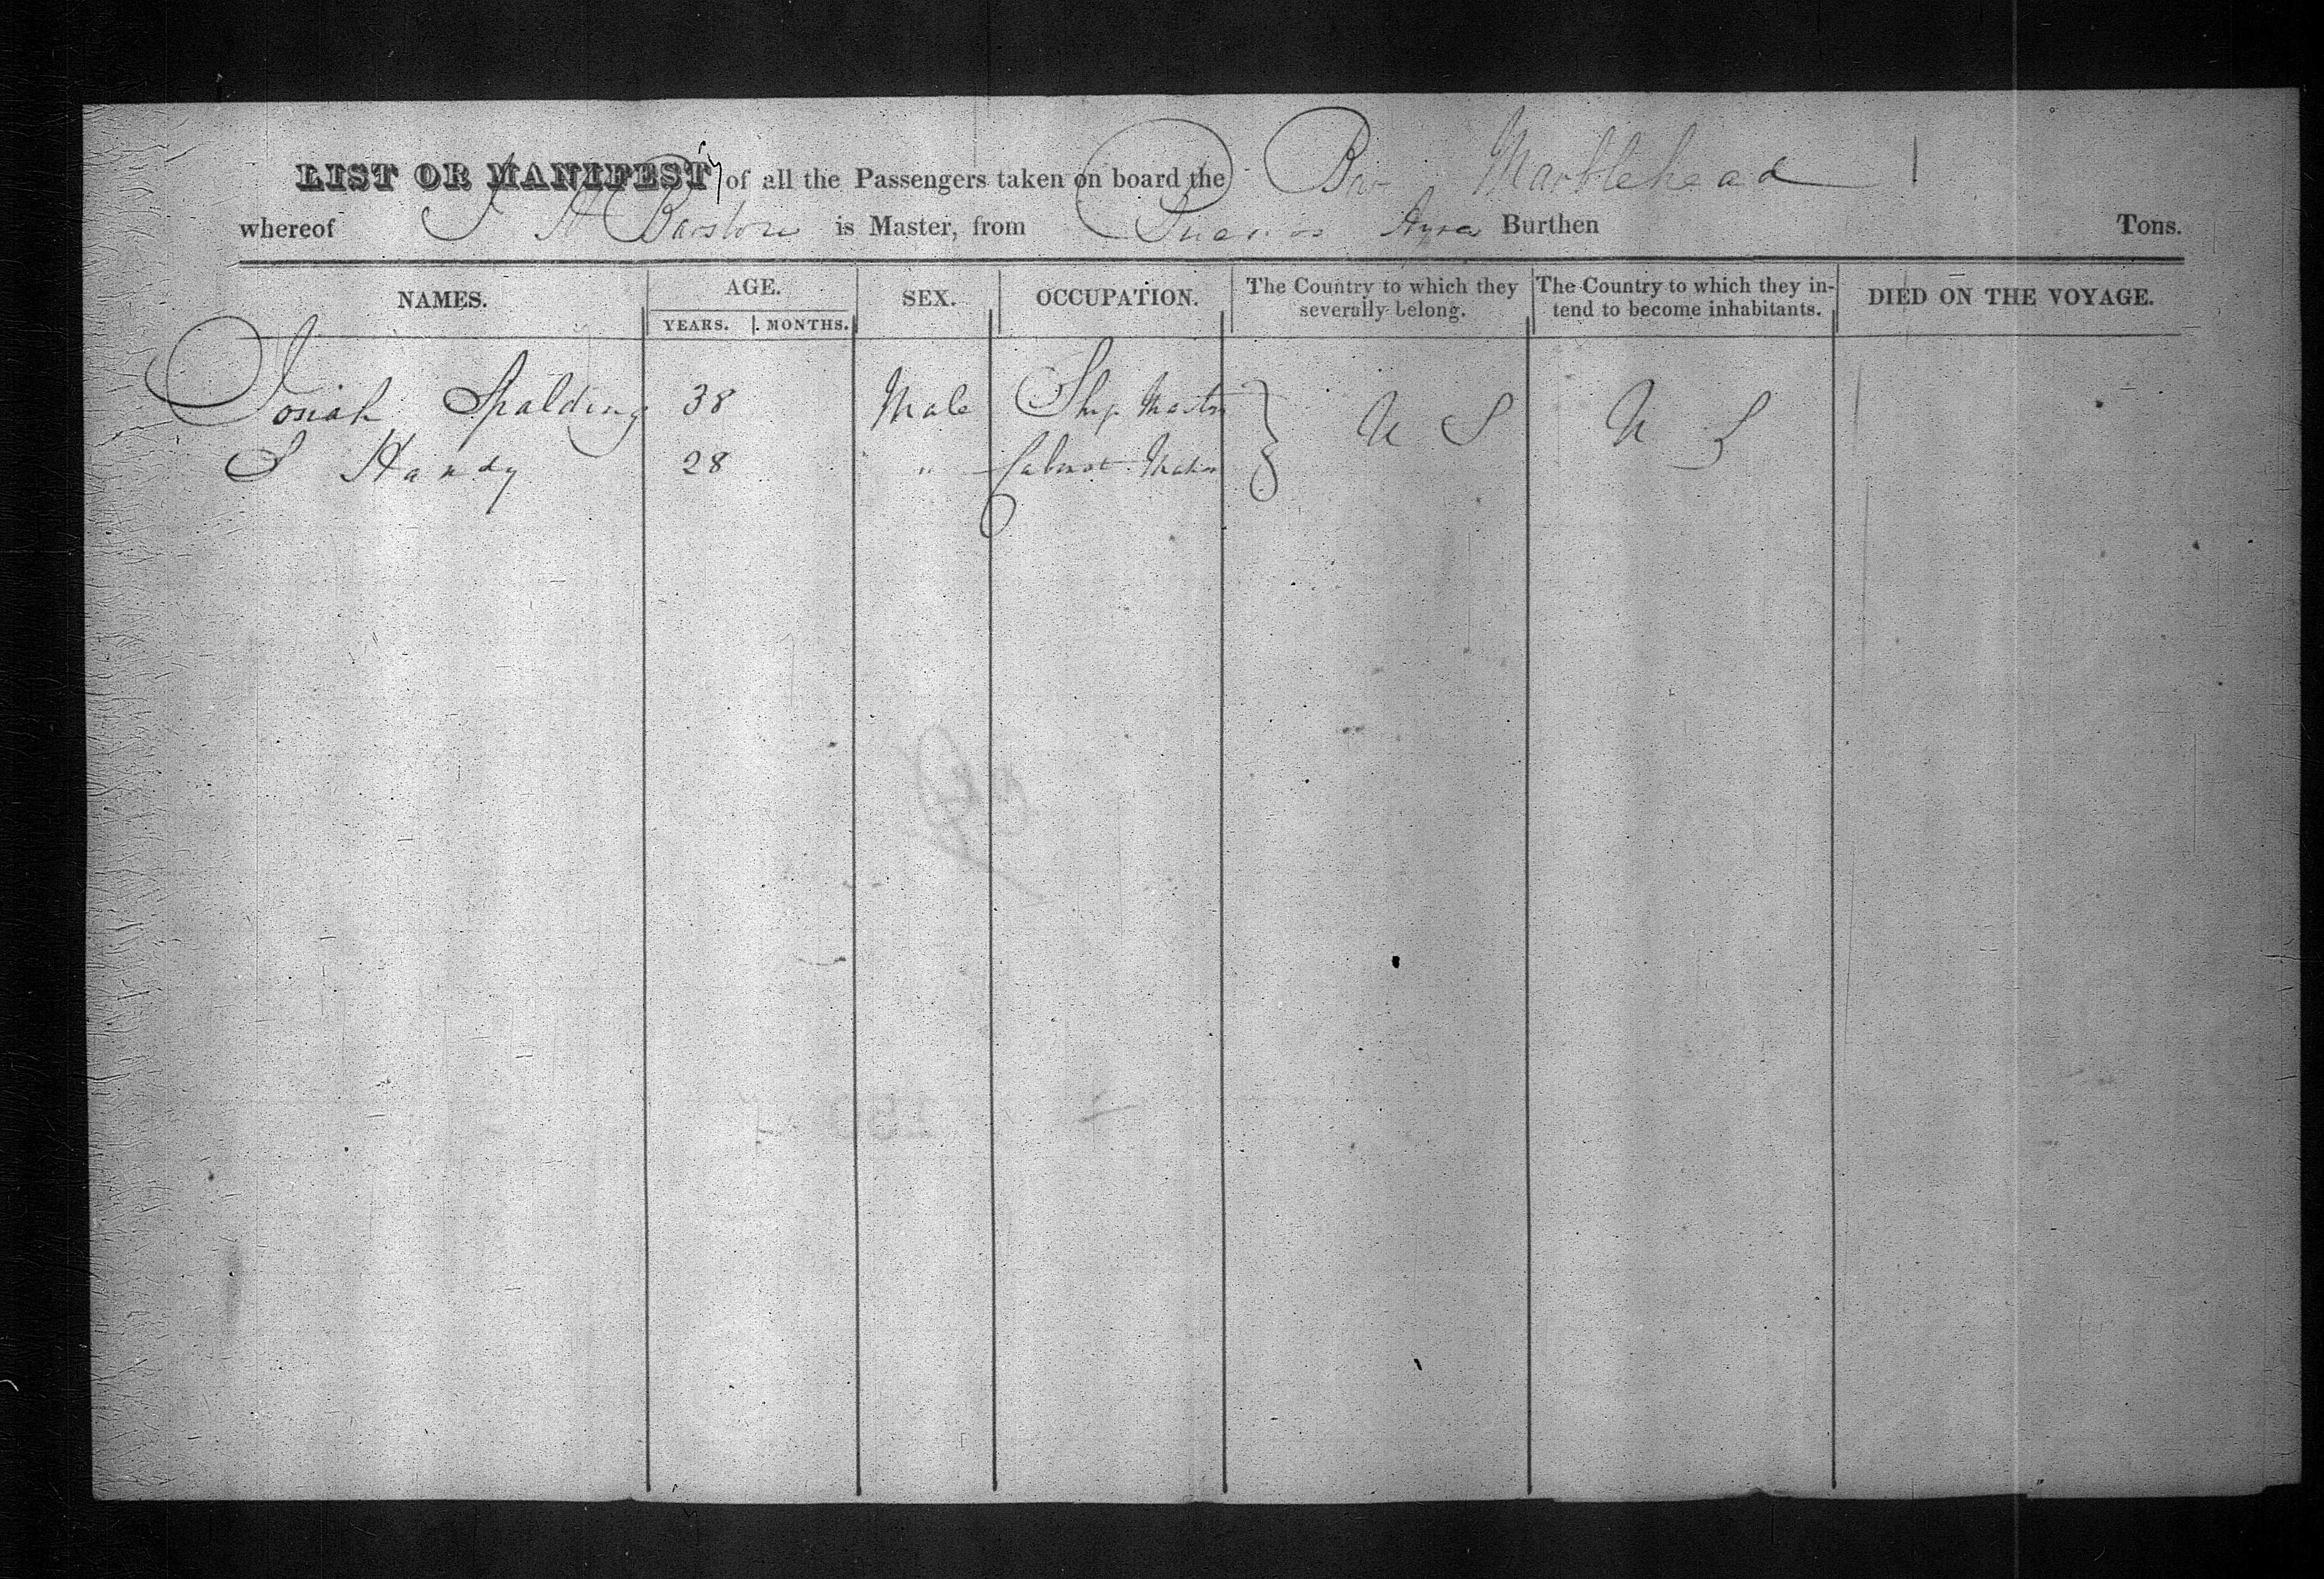 LIST OR MANIFEST of all the Passengers taken on board the Bar Marblehead
whereof J H Barstow is Master, from Buenos Ayres Burthen Tons.
NAMES. AGE. SEX. OCCUPATION. The Country to which they severally belong. The Country to which they in-tend to become inhabitants. DIED ON THE VOYAGE.
YEARS. MONTHS.
Josiah Spalding 38 Male Ship Master U S U S
S Handy 28 " Cabinet Maker